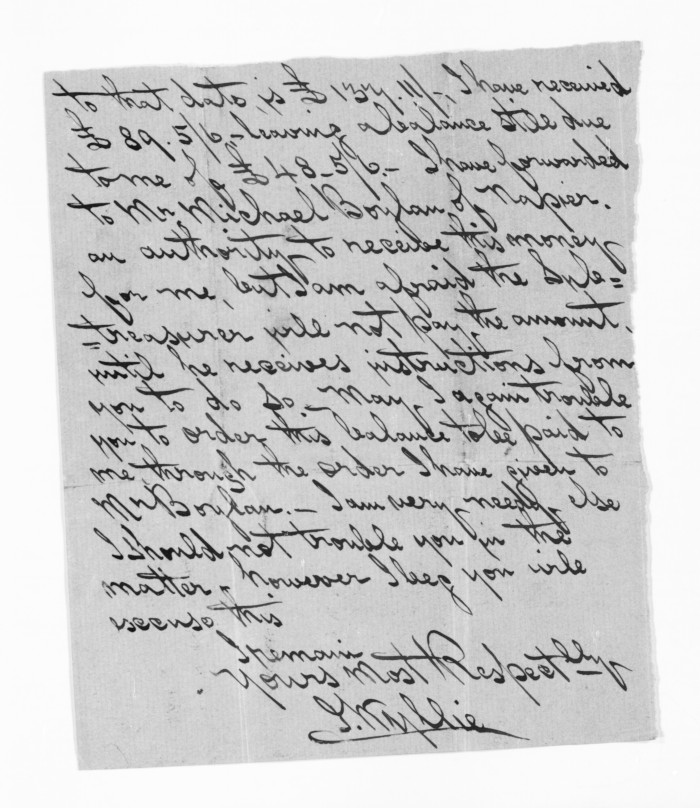 to that date, is £137.11/-, I have received
£89.5/6, leaving a balance still due
to me of £48-5/6.- I have forwarded
to Mr. Michael Boylan of Napier.
an authority to receive this money
for me, but I am afraid the Sub=
=treasurer will not pay the amount,
until he receives instructions from
you to do so. May I again trouble
you to order this balance to be paid to
me, through the order I have given to
Mr Boylan. - I am very needy, else
I should not trouble you in the
matter - however I beg you will
excuse this
I remain
Yours most Respectlly